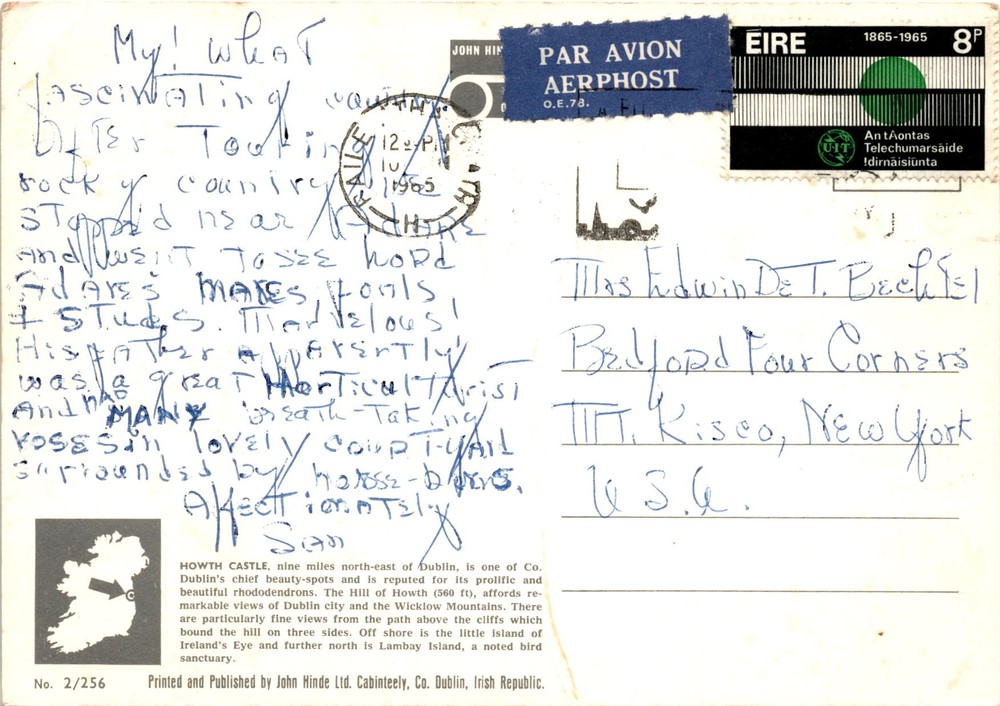 My! What
fascinating country
After Touring
rocky country we
stopped near Adare
and went to see Lord
Adare's MARES, foals
+ studs. Marvelous!
His father apparently
was a great Horticulturist
And had MANY breath-taking
roses in lovely court-yard
surrounded by horse-barns.
Affectionately
San
JOHN HIN
PAR AVION
AERPHOST
O.E.78.
ÉIRE 1865-1965 8P
UIT
An tAontas
Telechumarsáide
Idirnáisiúnta
12 30 PM
1965
Mrs Edwin De T. Bechtel
Bedford Four Corners
Mt. Kisco, New York
U.S.A.
HOWTH CASTLE, nine miles north-east of Dublin, is one of Co.
Dublin's chief beauty-spots and is reputed for its prolific and
beautiful rhododendrons. The Hill of Howth (560 ft), affords re-
markable views of Dublin city and the Wicklow Mountains. There
are particularly fine views from the path above the cliffs which
bound the hill on three sides. Off shore is the little island of
Ireland's Eye and further north is Lambay Island, a noted bird
sanctuary.
No. 2/256
Printed and Published by John Hinde Ltd. Cabinteely, Co. Dublin, Irish Republic.